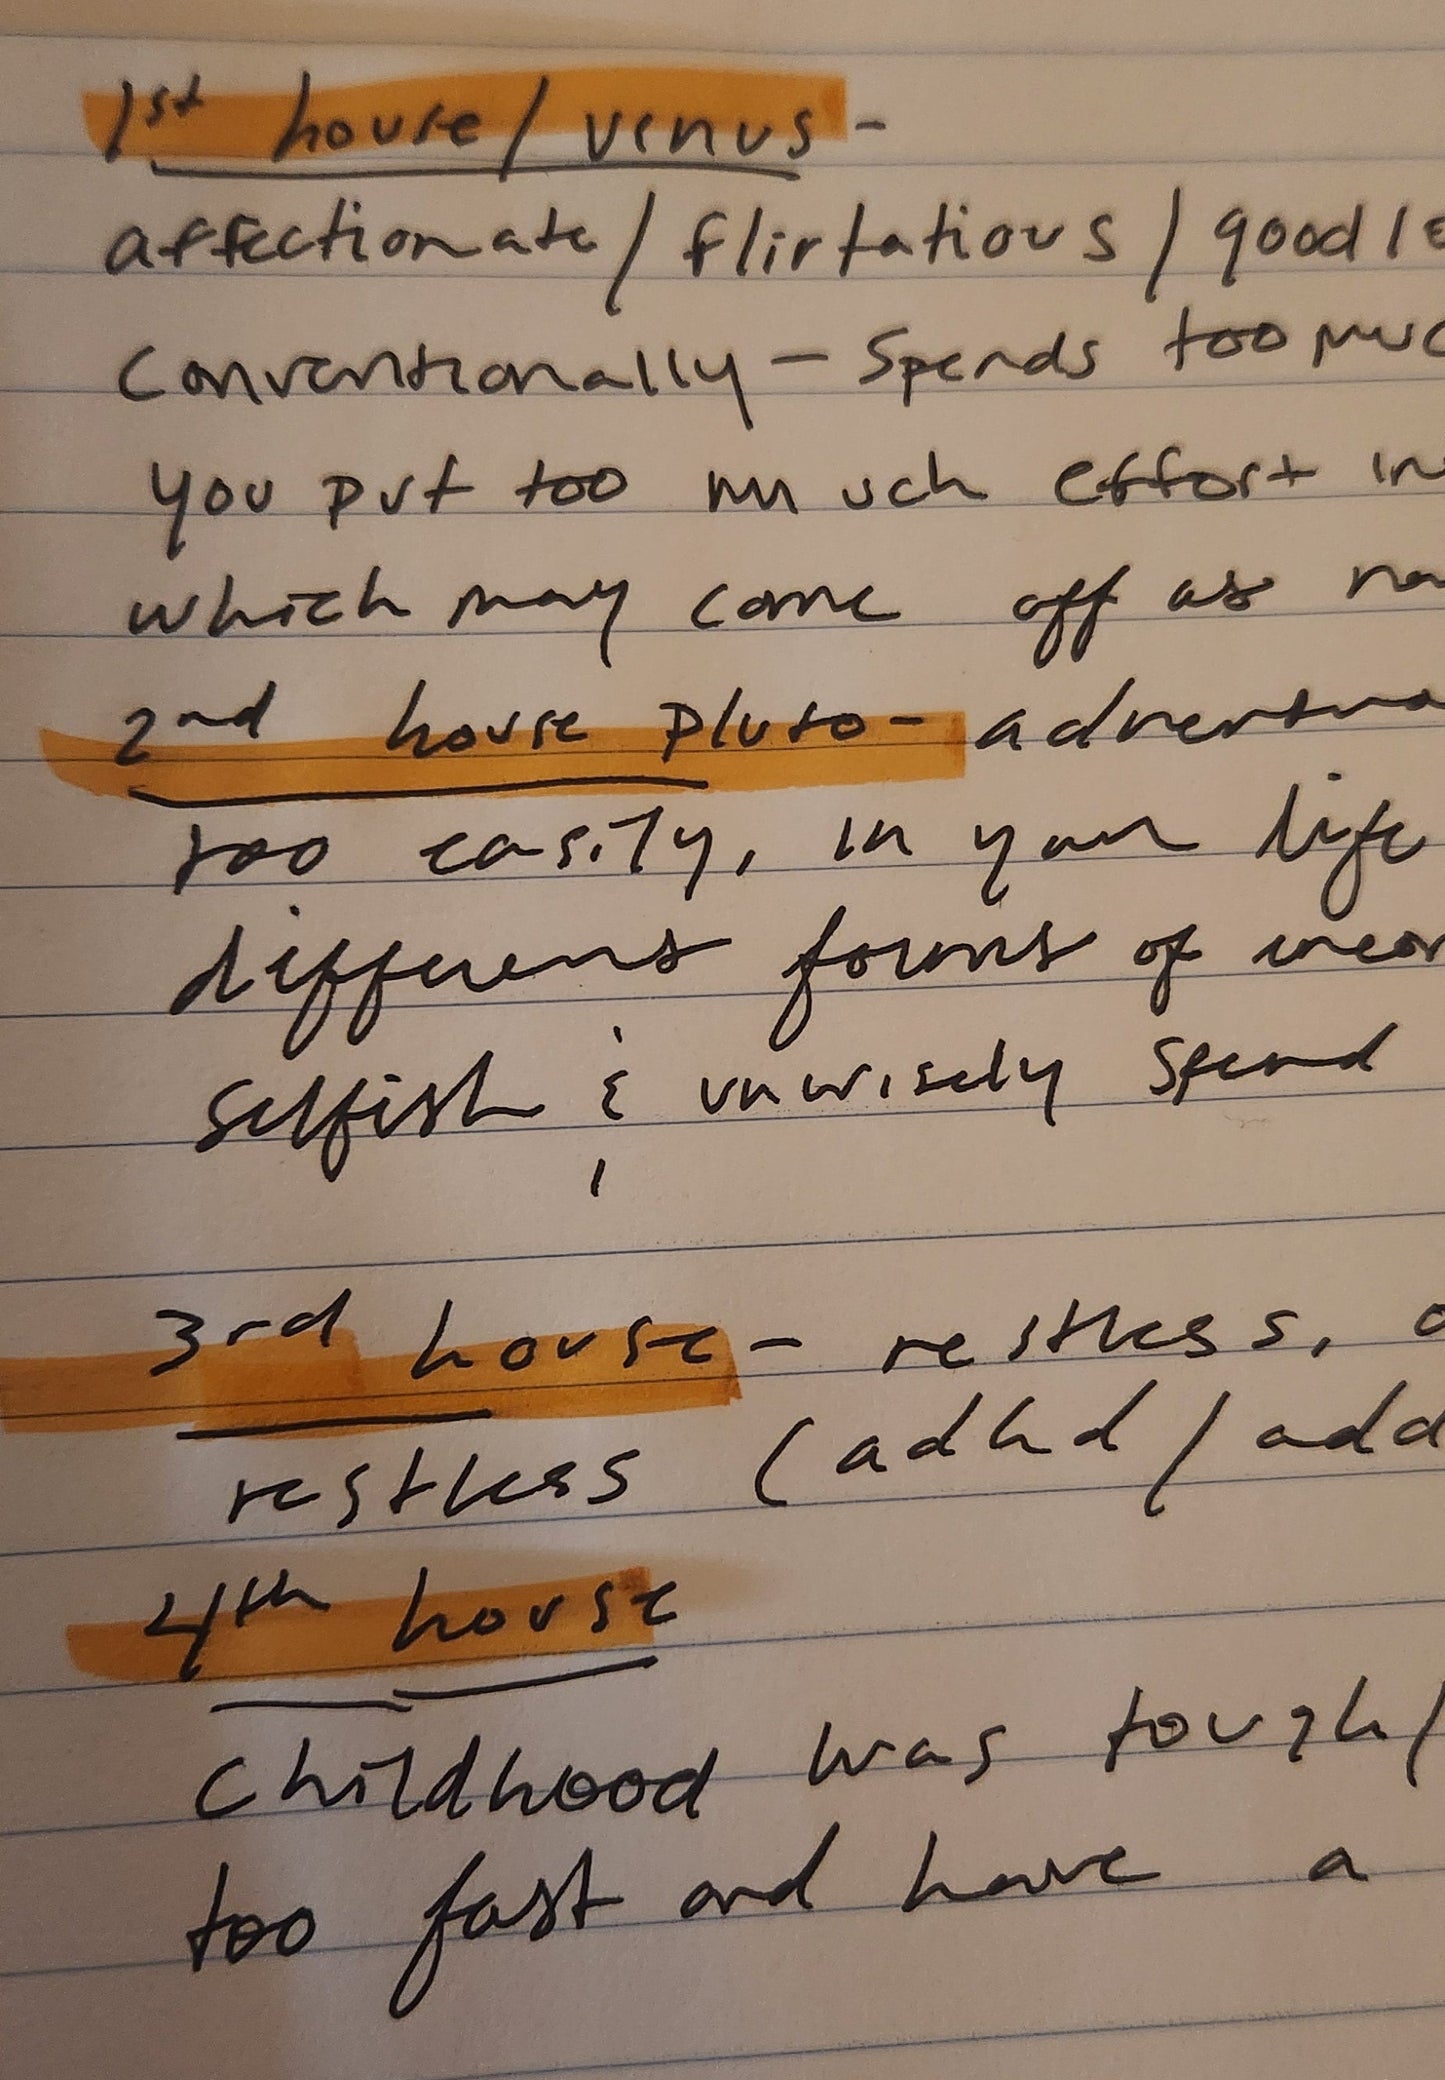 1st house/venus -
affectionate/flirtatious/good
conventionally - Spends too
you put too much effort
which may come off as
2nd house pluto -
too easily, in your life
different forms of
selfish & unwisely spend
3rd house - restless,
restless (adhd/add
4th house
childhood was tough/
too fast and have a